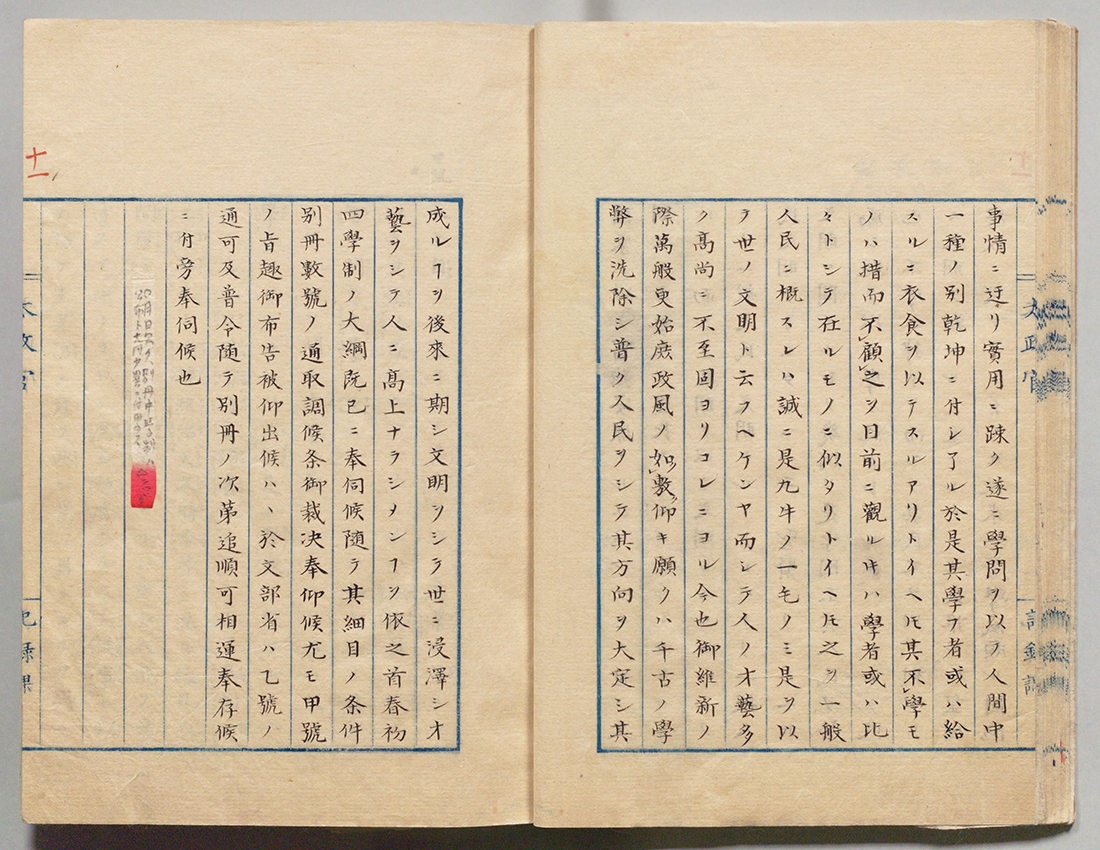 事情ニ迂リ實用ニ踈ク遂ニ學問ヲ以テ人間中
一種ノ別乾坤ニ付シ了ル於是其學フ者或ハ給
スルニ衣食ヲ以テスルアリトイヘ𪜈其不學モ
ノハ措而不顧之ヲ目前ニ觀ル𬼀ハ學者或ハ比
々トシテ在ルモノニ似タリトイヘ𪜈之ヲ一般
人民ニ概スレハ誠ニ是九牛ノ一毛ノミ是ヲ以
テ世ノ文明ト云フヘケンヤ而シテ人ノ才藝多
ク高尚ニ不至固ヨリコレニヨル今也御維新ノ
際萬般更始庶政風ノ如敷仰キ願クハ千古ノ學
弊ヲ洗除シ普ク人民ヲシテ其方向ヲ大定シ其
太政官
成ルヿヲ後來ニ期シ文明ヲシテ世ニ浸澤シオ
藝ヲシテ人ニ高上ナラシメンヿヲ依之首春初
四學制ノ大綱既已ニ奉伺候随テ其細目ノ条件
別冊數號ノ通取調候条御裁決奉仰候尤モ甲號
ノ旨趣御布告被仰出候ハヽ於文部省ハ乙號ノ
通可及普令随テ別冊ノ次第追順可相運奉存候
ニ付旁奉伺候也
太政官
記録課
十一